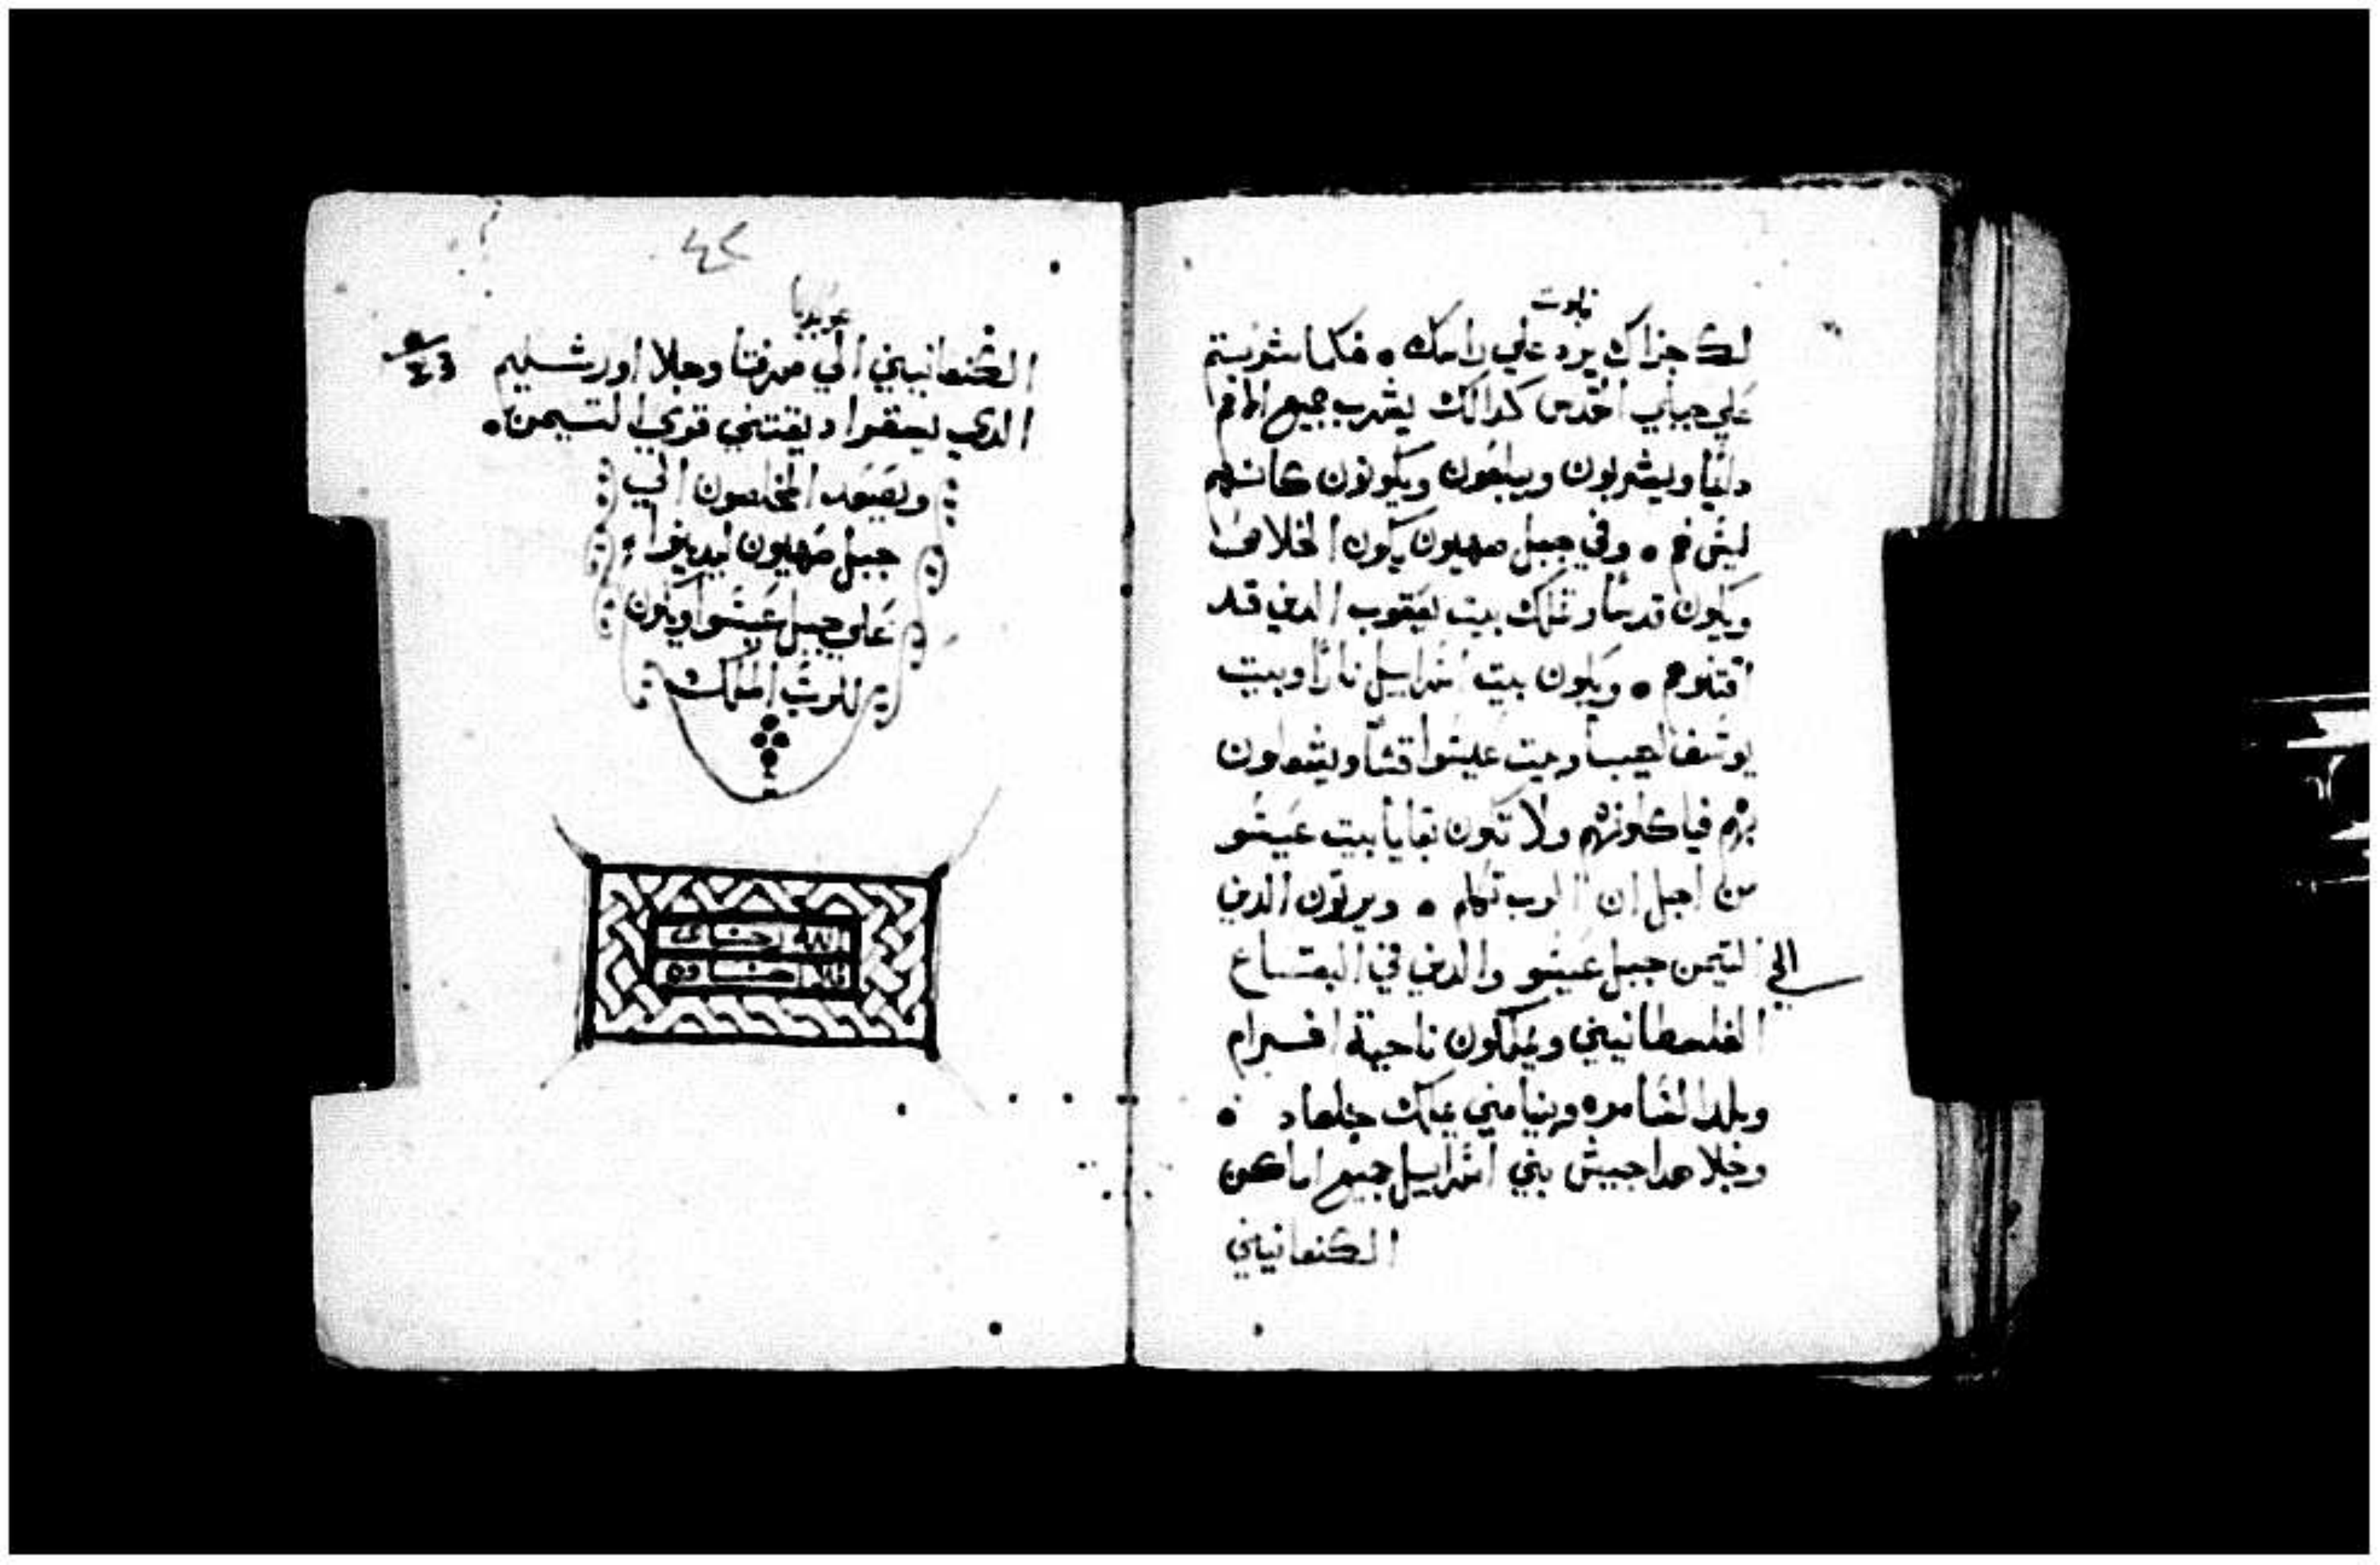 نبوت
لك جزاك يرد علي راسك • فكما شربتم
علي جبلي القدس كدالك يشرب جميع الامم
دايما ويشربون ويبلعون ويكونون كانهم
ليس هم • وفي جبل صهيون يكون الخلاص
ويكون قدسا وتملك بيت يعقوب الدين قد
اقتنوهم • ويكون بيت اسراييل نارا وبيت
يوسف لهيبا وبيت عيسوا قشا ويشعلون
بهم فياكلونهم ولا تكون بقايا بيت عيسو
من اجل ان الرب تكلم • ويرتون الدين
الي التيمن جبل عيسو والدين في البقساع
الفلسطانيين ويملكون ناحية افسرام
وبلد السامره وبنيامين يملك جلعاد •
وجلا هدا جيش بني اسراييل جميع اماكن
الكنعانيين
٤٢
عوبديا
الكنعانيين الي صرفتا وجلا اورشليم
الدي ليعفرا ديقتني قري التيمن •
ويصعد المخلصون الي
جبل صهيون ليدينوا
علي جبل عيسوا ويكون
للرب الملك